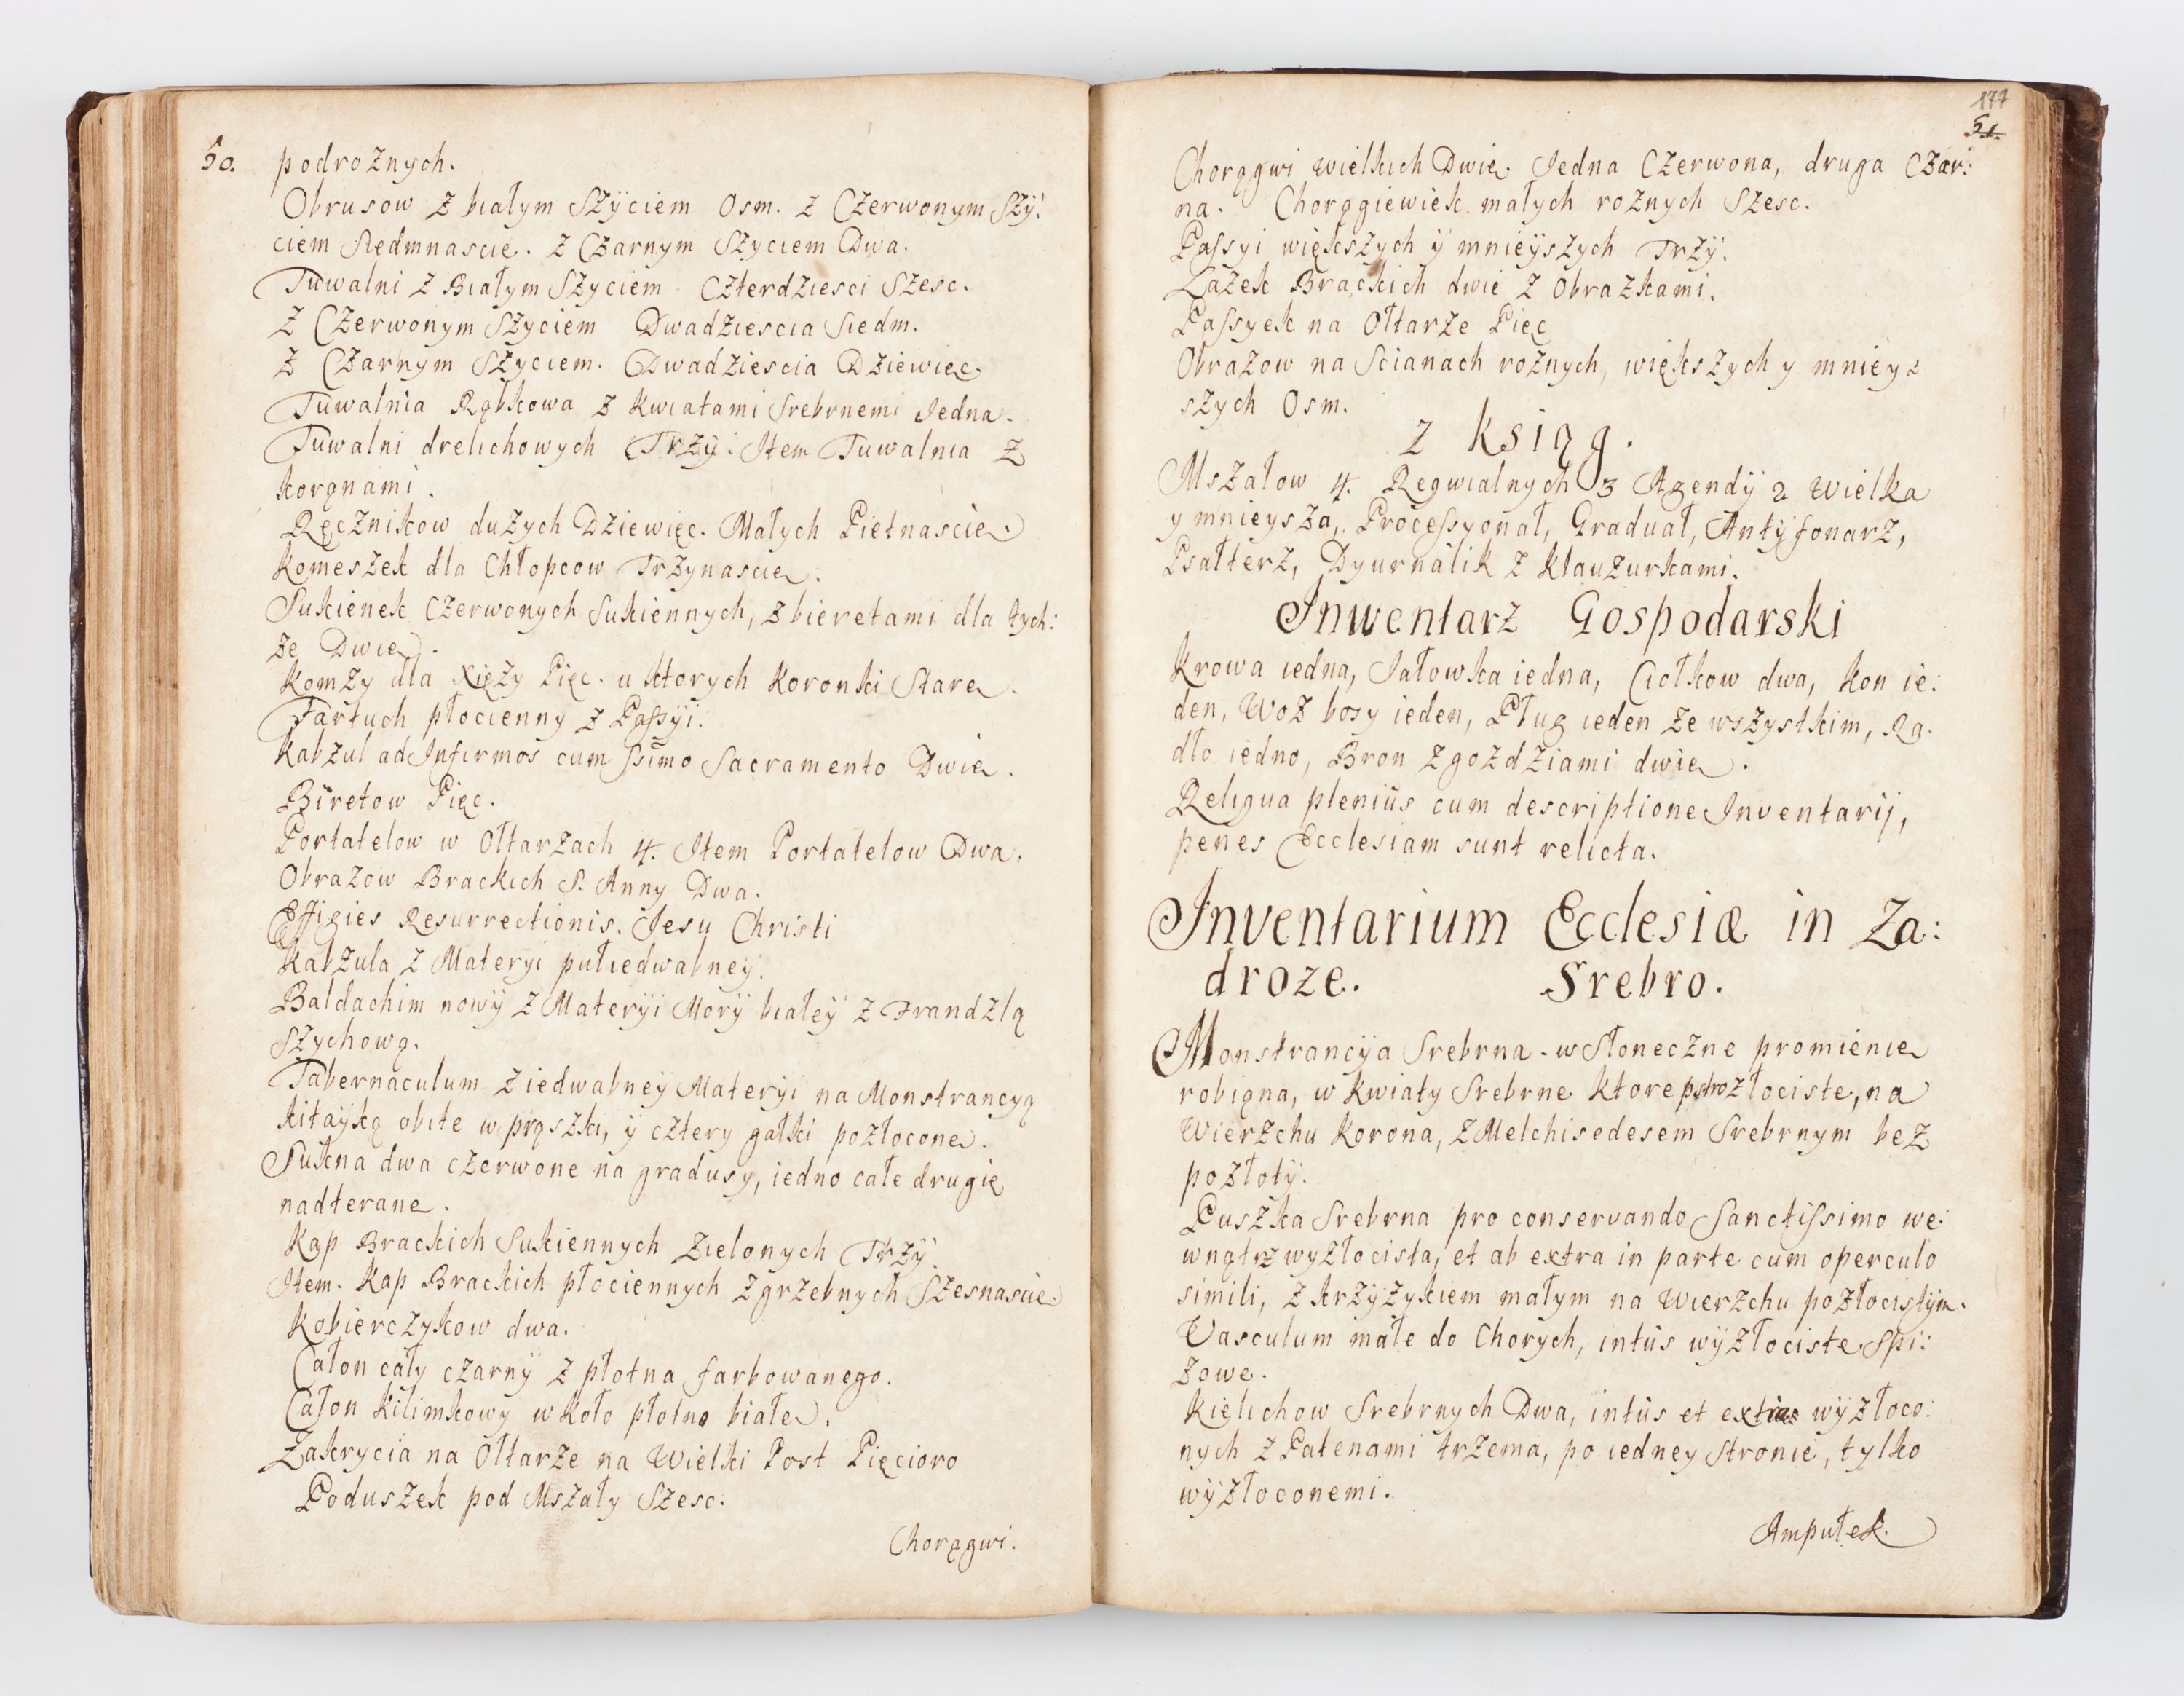 50. podrożnych.
Obrusow z białym Szÿciem Osm. z Czerwonym Szÿ:
ciem Siedmnascie. z Czarnym Szyciem Dwa.
Tuwalni z Białym Szyciem Czterdziesci Szesc.
z Czerwonym Szyciem Dwadziescia Siedm.
z Czarnym Szyciem. Dwadziescia Dziewięc.
Tuwalnia Rąbkowa z kwiatami Srebrnemi Jedna.
Tuwalni drelichowych Trzÿ. Item Tuwalnia z
korąnami.
Ręcznikow dużych Dziewięc. Małych Pietnascie.
Komeszek dla Chłopcow Trzynascie.
Sukienek Czerwonych Sukiennych, z bieretami dla tych:
że Dwie.
Komży dla Xięży Pięc. u ktorych Koronki Stare.
Fartuch płocienny z Passyi.
Kabzul ad Infirmos cum ssimo Sacramento Dwie.
Biretow Pięc.
Portatelow w Ołtarzach 4. Item Portatelow Dwa.
Obrazow Brackich S. Anny Dwa.
Effigies Resurrectionis. Jesu Christi
Kabzula z Materyi pułiedwabney.
Baldachim nowÿ z Materÿi Morÿ białeÿ z Frandzlą
Szychową.
Tabernaculum z iedwabneÿ Materÿi na Monstrancyą
kitayką obite w prąszki, ÿ cztery gałki pozłocone.
Sukna dwa czerwone na gradusy, iedno całe drugie
nadterane.
Kap Brackich Sukiennych Zielonych Trzÿ.
Item. Kap Brackich płociennych zgrzebnych Szesnascie.
Kobierczykow dwa.
Całon cały czarnÿ z płotna farbowanego.
Całon Kilimkowy w koło płotno białe.
Zakrycia na Ołtarze na Wielki Post Pięcioro
Poduszek pod Mszały Szesc.
Chorągwi.
177
51.
Chorągwi wielkich Dwie Jedna Czerwona, druga Czar:
na. Chorągiewiek małych rożnych Szesc.
Passyi większych ÿ mnieÿszych Trzÿ.
Lażek Brackich dwie z Obrazkami.
Passyek na Ołtarze Pięc
Obrazow na Scianach rożnych, większych y mniey:
szych Osm.
z Ksiąg.
Mszałow 4. Regwialnych 3 Agendÿ 2 Wielka
y mnieysza, Processyonał, Graduał, Antÿfonarz,
Psałterz, Dyurnalik z klauzurkami.
Inwentarz Gospodarski
Krowa iedna, Jałowka iedna, Ciołkow dwa, kon ie:
den, Woz bosy ieden, Pług ieden ze wszystkim, Ra:
dło iedno, Bron z gozdziami dwie.
Reliqua pleniùs cum descriptione Inventarij,
penes Ecclesiam sunt relicta.
Inventarium Ecclesiæ in Za:
droze. Srebro.
Monstrancÿa Srebrna w Słoneczne promienie
robiąna, w kwiaty Srebrne ktore pstrozłociste, na
Wierzchu Korona, z Melchisedesem Srebrnym bez
pozłotÿ.
Puszka Srebrna pro conservando Sanctissimo we:
wnątrz wyzłocista, et ab extra in parte cum operculo
simili, z krzyżykiem małym na Wierzchu pozłocistÿm.
Vasculum małe do Chorych, intùs wÿzłociste Spi:
żowe.
Kielichow Srebrnych Dwa, intùs et extra wÿzłoco:
nych z Patenami trzema, po iedney Stronie, tylko
wÿzłoconemi.
Ampułek